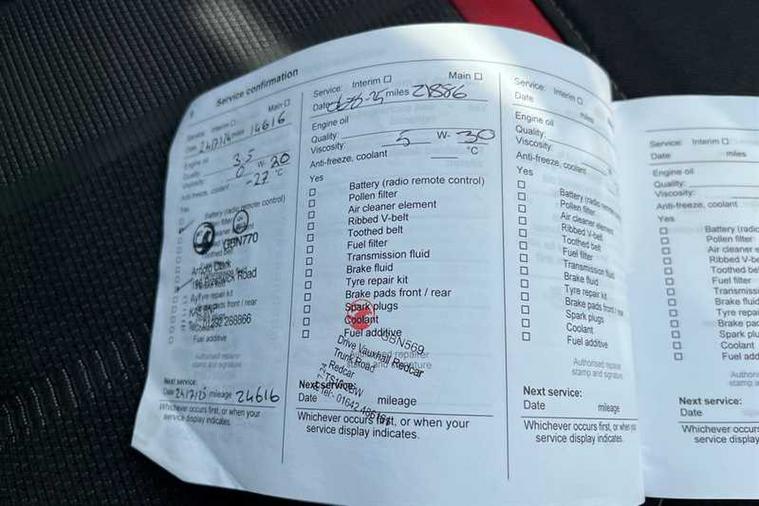 Service confirmation
Service: Interim ☐ Main ☐
Date 24/7/24 miles 14616
Engine oil
Quality: 3.5
Viscosity: 0 W- 20
Anti-freeze, coolant -27 °C
Yes
Battery (radio remote control)
GBN770
Arnold Clark
Road
Tyre repair kit
front / rear
Fuel additive
Authorised repairer
stamp and signature
Next service:
Date 24/7/25 mileage 24616
Whichever occurs first, or when your
service display indicates.
Service: Interim ☐ Main ☐
Date miles 21886
Engine oil
Quality:
Viscosity: 5 W- 30
Anti-freeze, coolant °C
Yes
☐ Battery (radio remote control)
☐ Pollen filter
☐ Air cleaner element
☐ Ribbed V-belt
☐ Toothed belt
☐ Fuel filter
☐ Transmission fluid
☐ Brake fluid
☐ Tyre repair kit
☐ Brake pads front / rear
☐ Spark plugs
☐ Coolant
☐ Fuel additive
GBN569
Drive Vauxhall Redcar
Trunk Road
Redcar
Authorised repairer
stamp and signature
Tel:- 01642
Next service:
Date mileage
Whichever occurs first, or when your
service display indicates.
Service: Interim ☐
Date miles
Engine oil
Quality:
Viscosity:
Anti-freeze, coolant
Yes
☐ Battery (radio remote
☐ Pollen filter
☐ Air cleaner
☐ Ribbed V-belt
☐ Toothed belt
☐ Fuel filter
☐ Transmission fluid
☐ Brake fluid
☐ Tyre repair kit
☐ Brake pads front / rear
☐ Spark plugs
☐ Coolant
☐ Fuel additive
Authorised repairer
stamp and signature
Next service:
Date mileage
Whichever occurs first, or when you
service display indicates.
Service: Interim ☐
Date miles
Engine oil
Quality:
Viscosity:
Anti-freeze, coolant
Yes
☐ Battery (radio
☐ Pollen filter
☐ Air cleaner e
☐ Ribbed V-b
☐ Toothed bel
☐ Fuel filter
☐ Transmiss
☐ Brake fluid
☐ Tyre repai
☐ Brake pad
☐ Spark plu
☐ Coolant
☐ Fuel add
Authori
stamp a
Next service:
Date
Whichever occurs
service display